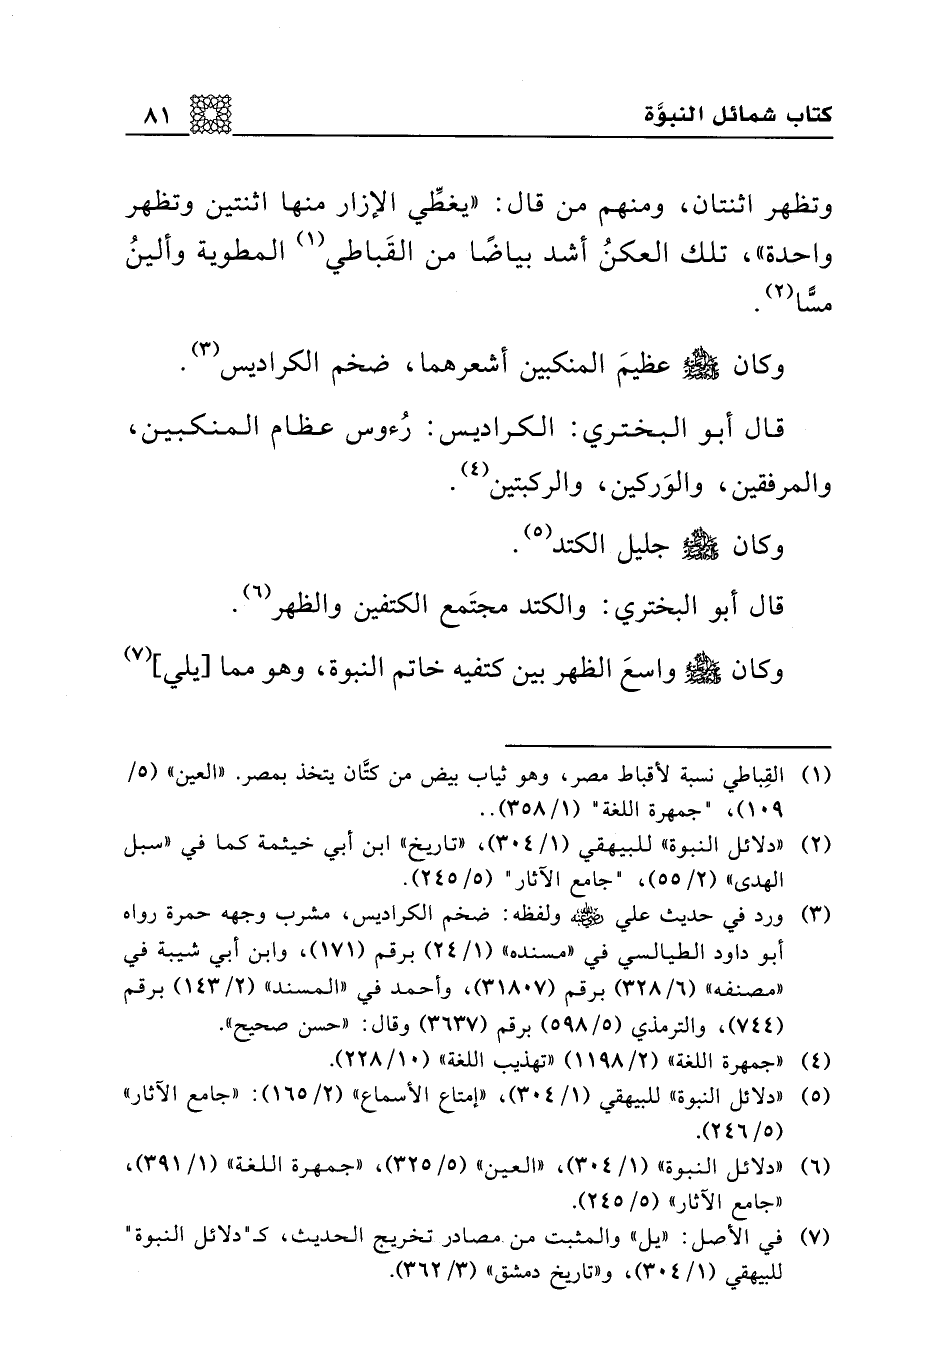 كتاب شمائل النبوَّة ٨١
وتظهر اثنتان، ومنهم من قال: «يغطِّي الإزار منها اثنتين وتظهر
واحدة»، تلك العكنُ أشد بياضًا من القَباطي(١) المطوية وألينُ
مسًّا(٢).
وكان ﷺ عظيمَ المنكبين أشعرهما، ضخم الكراديس(٣).
قال أبو البختري: الكراديس: رُءوس عظام المنكبين،
والمرفقين، والوَركين، والركبتين(٤).
وكان ﷺ جليل الكتد(٥).
قال أبو البختري: والكتد مجتَمع الكتفين والظهر(٦).
وكان ﷺ واسعَ الظهر بين كتفيه خاتم النبوة، وهو مما [يلي](٧)
(١) القِباطي نسبة لأقباط مصر، وهو ثياب بيض من كتَّان يتخذ بمصر. «العين» (٥/
١٠٩)، "جمهرة اللغة" (١/ ٣٥٨)..
(٢) «دلائل النبوة» للبيهقي (١/ ٣٠٤)، «تاريخ» ابن أبي خيثمة كما في «سبل
الهدى» (٢/ ٥٥)، "جامع الآثار" (٥/ ٢٤٥).
(٣) ورد في حديث علي ﷺ ولفظه: ضخم الكراديس، مشرب وجهه حمرة رواه
أبو داود الطيالسي في «مسنده» (١/ ٢٤) برقم (١٧١)، وابن أبي شيبة في
«مصنفه» (٦/ ٣٢٨) برقم (٣١٨٠٧)، وأحمد في «المسند» (٢/ ١٤٣) برقم
(٧٤٤)، والترمذي (٥/ ٥٩٨) برقم (٣٦٣٧) وقال: «حسن صحيح».
(٤) «جمهرة اللغة» (٢/ ١١٩٨) «تهذيب اللغة» (١٠/ ٢٢٨).
(٥) «دلائل النبوة» للبيهقي (١/ ٣٠٤)، «إمتاع الأسماع» (٢/ ١٦٥): «جامع الآثار»
(٥/ ٢٤٦).
(٦) «دلائل النبوة» (١/ ٣٠٤)، «العين» (٥/ ٣٢٥)، «جمهرة اللغة» (١/ ٣٩١)،
«جامع الآثار» (٥/ ٢٤٥).
(٧) في الأصل: «يل» والمثبت من مصادر تخريج الحديث، كـ"دلائل النبوة"
للبيهقي (١/ ٣٠٤)، و«تاريخ دمشق» (٣/ ٣٦٢).